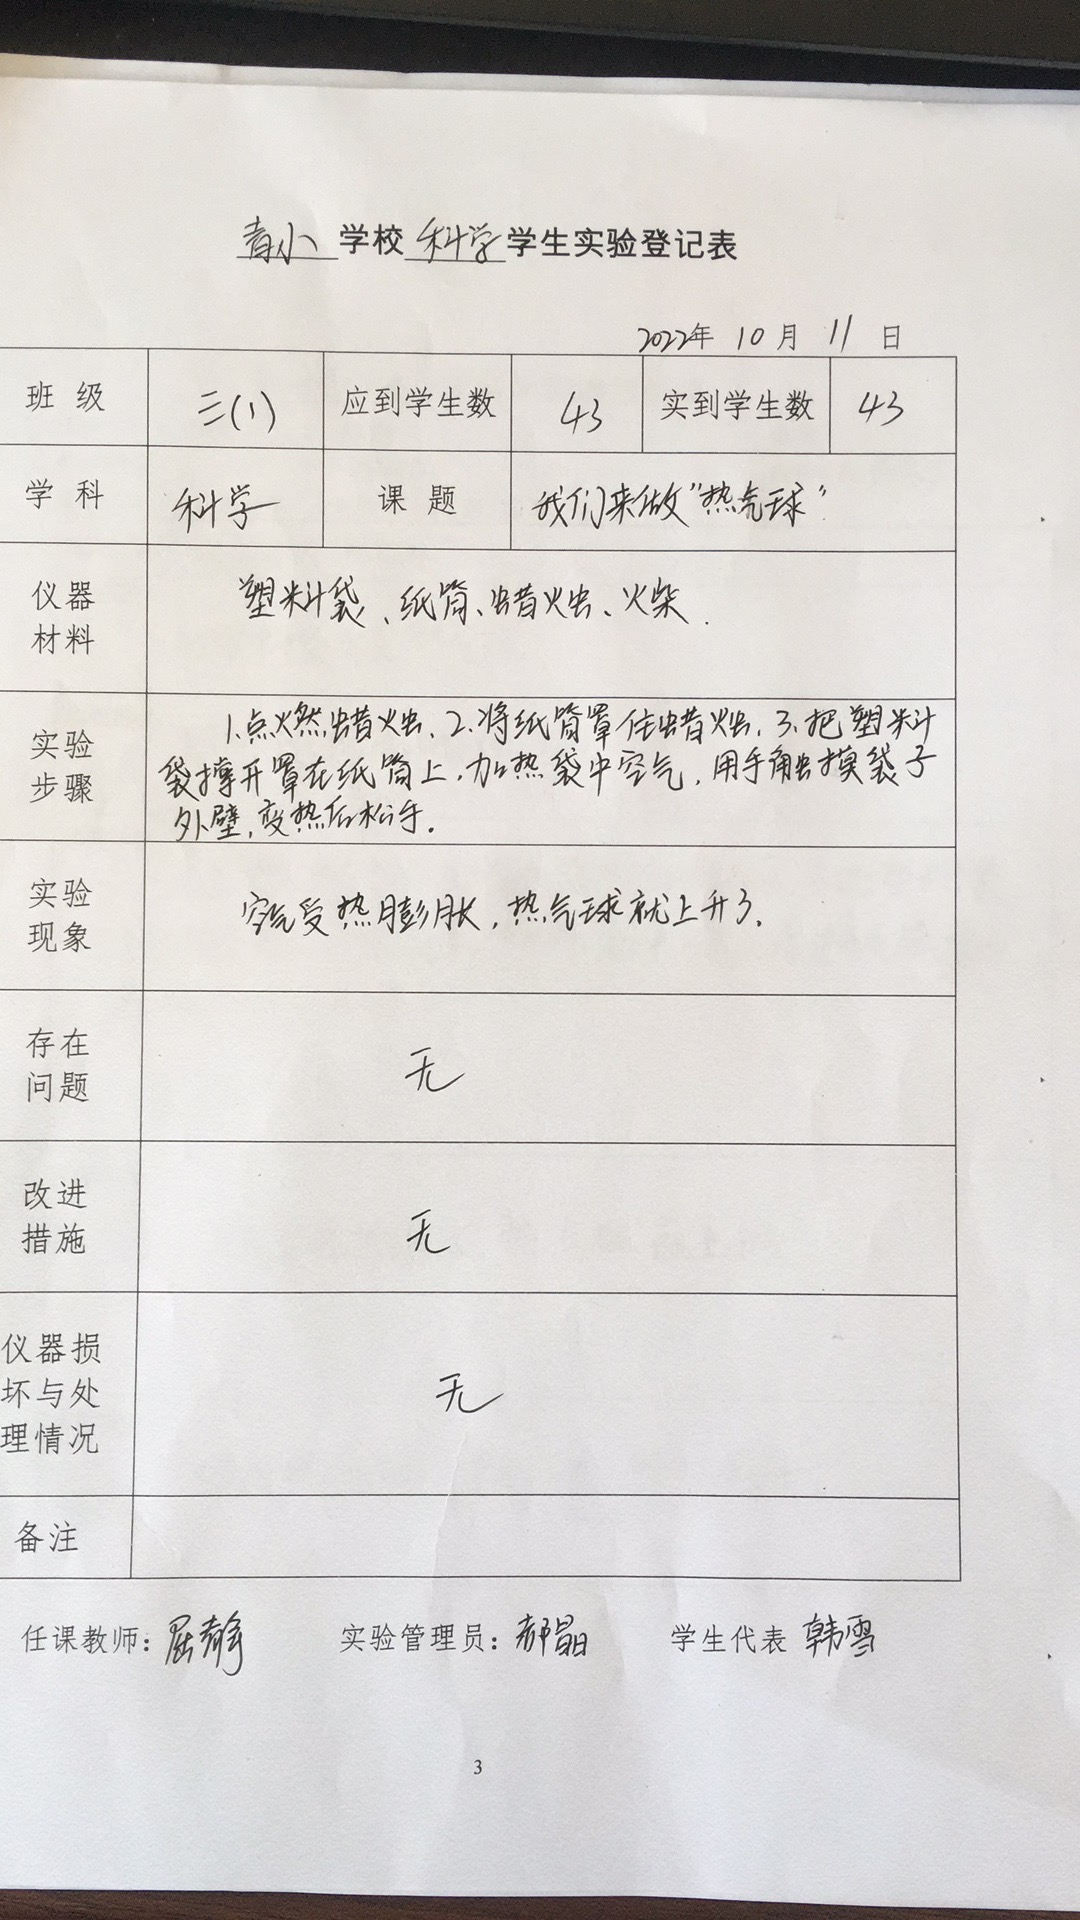 青小 学校 科学 学生实验登记表
2022年 10月 11日
班级 三(1) 应到学生数 43 实到学生数 43
学科 科学 课题 我们来做"热气球"
仪器
材料
塑料袋、纸筒、蜡烛、火柴.
实验
步骤
1.点燃蜡烛、2.将纸筒罩住蜡烛、3.把塑料
袋撑开罩在纸筒上,加热袋中空气,用手触摸袋子
外壁,变热后松手.
实验
现象
空气受热膨胀,热气球就上升了.
存在
问题
无
改进
措施
无
仪器损
坏与处
理情况
无
备注
任课教师: 屈静 实验管理员: 郝晶 学生代表 韩雪
3